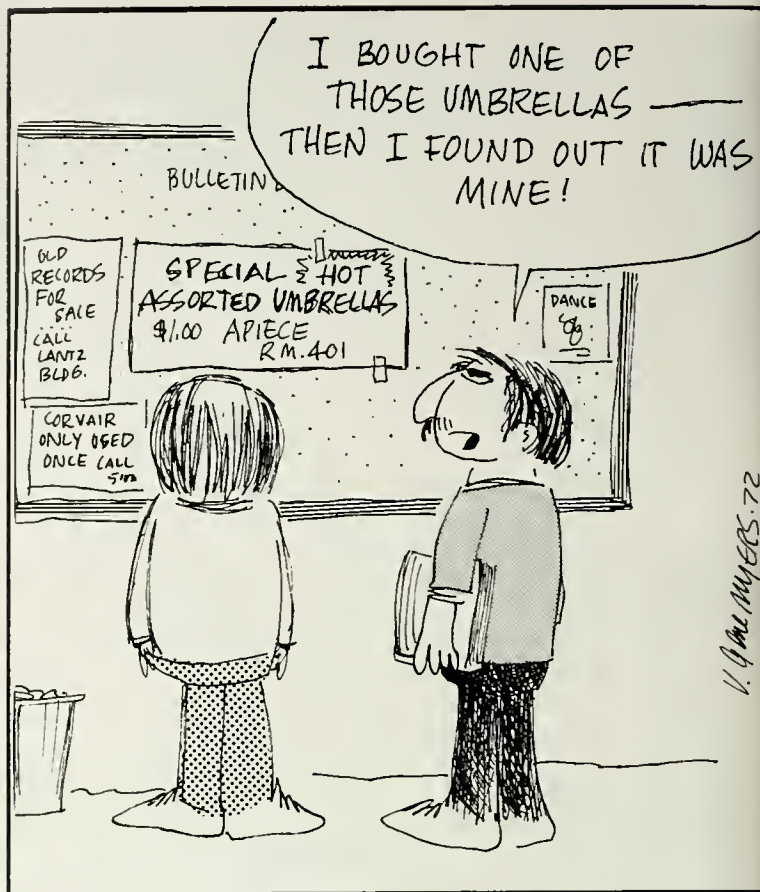 I BOUGHT ONE OF
THOSE UMBRELLAS —
THEN I FOUND OUT IT WAS
MINE!
BULLETIN
OLD
RECORDS
FOR
SALE
CALL
LANTZ
BLDG.
SPECIAL HOT
ASSORTED UMBRELLAS
$1.00 APIECE
RM. 401
DANCE
CORVAIR
ONLY USED
ONCE CALL
V. Gene MYERS. 72